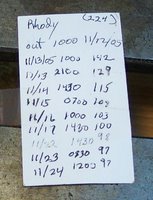 Rhody (224)
out 1000 11/12/05
11/13/05 1000 142
11/13 2100 129
11/14 1430 115
11/15 0700 108
11/16 1000 103
11/17 1430 100
11/22 1430 98
11/23 0830 97
11/24 1200 97